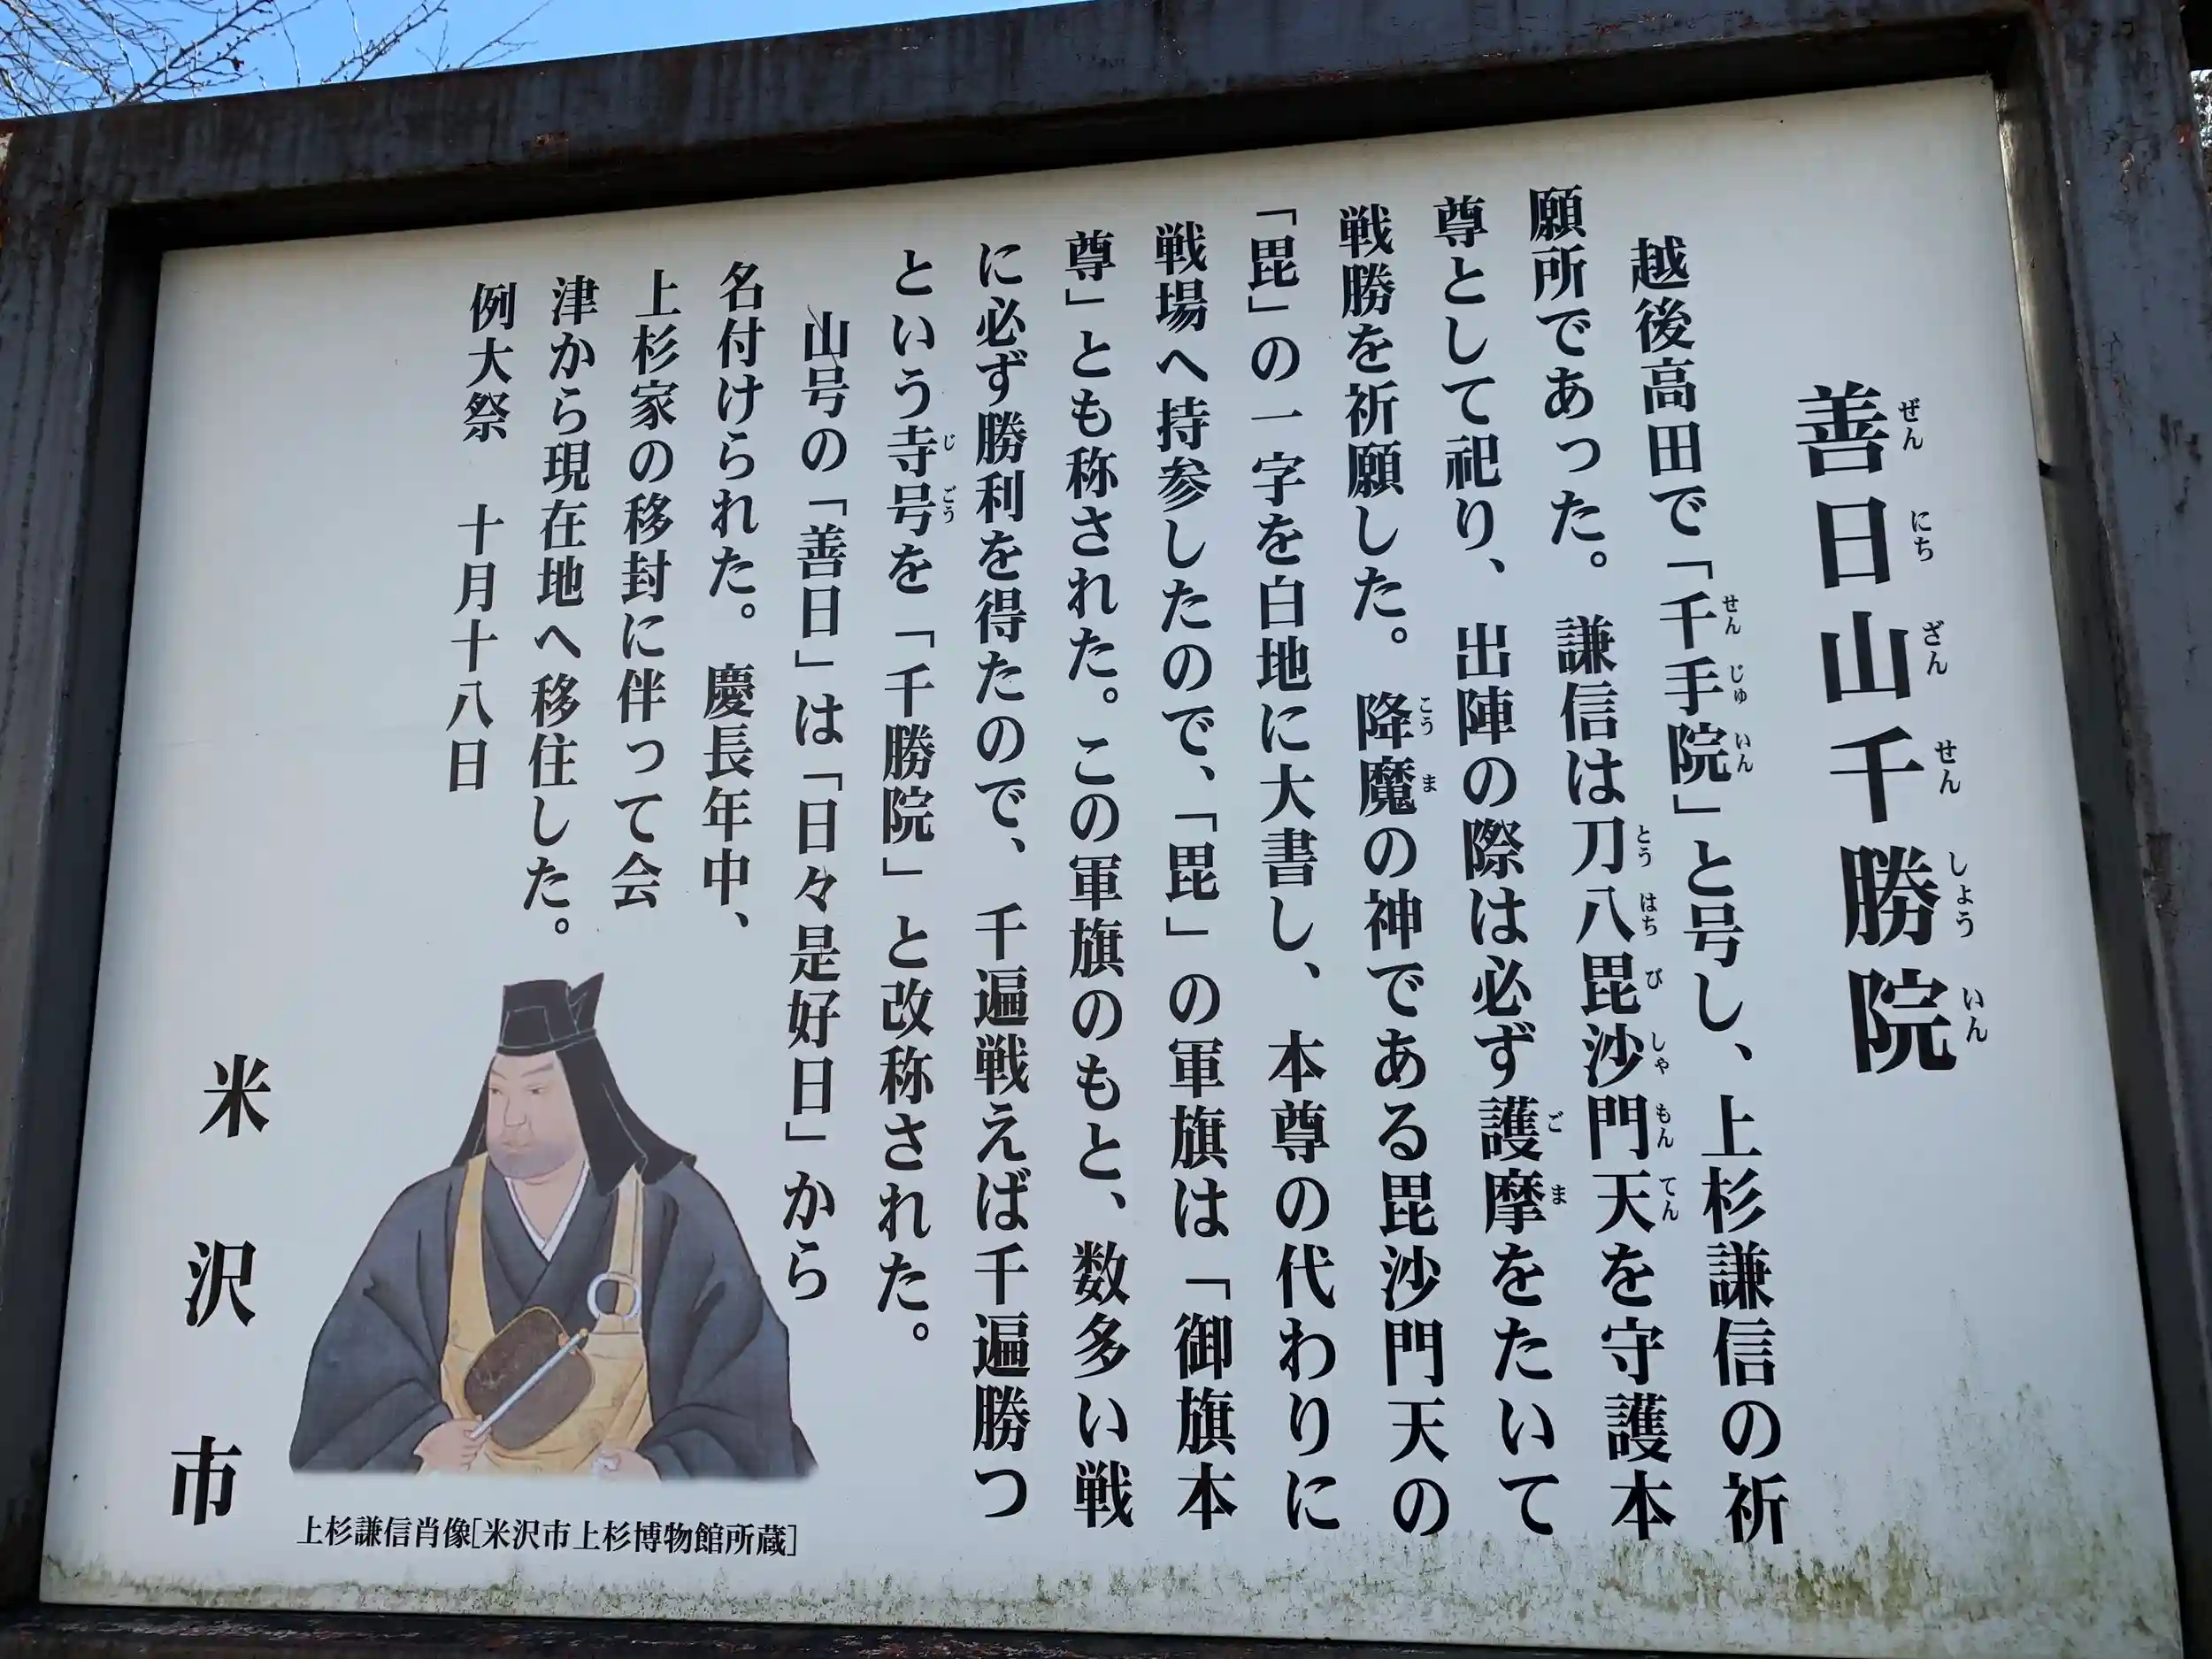 善日山千勝院
ぜんにちざんせんしょういん
越後高田で「千手院」と号し、上杉謙信の祈
せんじゅいん
願所であった。謙信は刀八毘沙門天を守護本
とうはちびしゃもんてん
尊として祀り、出陣の際は必ず護摩をたいて
ごま
戦勝を祈願した。降魔の神である毘沙門天の
こうま
「毘」の一字を白地に大書し、本尊の代わりに
戦場へ持参したので、「毘」の軍旗は「御旗本
尊」とも称された。この軍旗のもと、数多い戦
に必ず勝利を得たので、千遍戦えば千遍勝つ
という寺号を「千勝院」と改称された。
じごう
山号の「善日」は「日々是好日」から
名付けられた。慶長年中、
上杉家の移封に伴って会
津から現在地へ移住した。
例大祭 十月十八日
米沢市
上杉謙信肖像[米沢市上杉博物館所蔵]